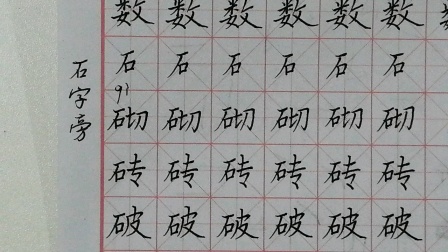 石字旁
数数数数数数
石石石石石石
qì
砌砌砌砌砌砌
砖砖砖砖砖砖
破破破破破破